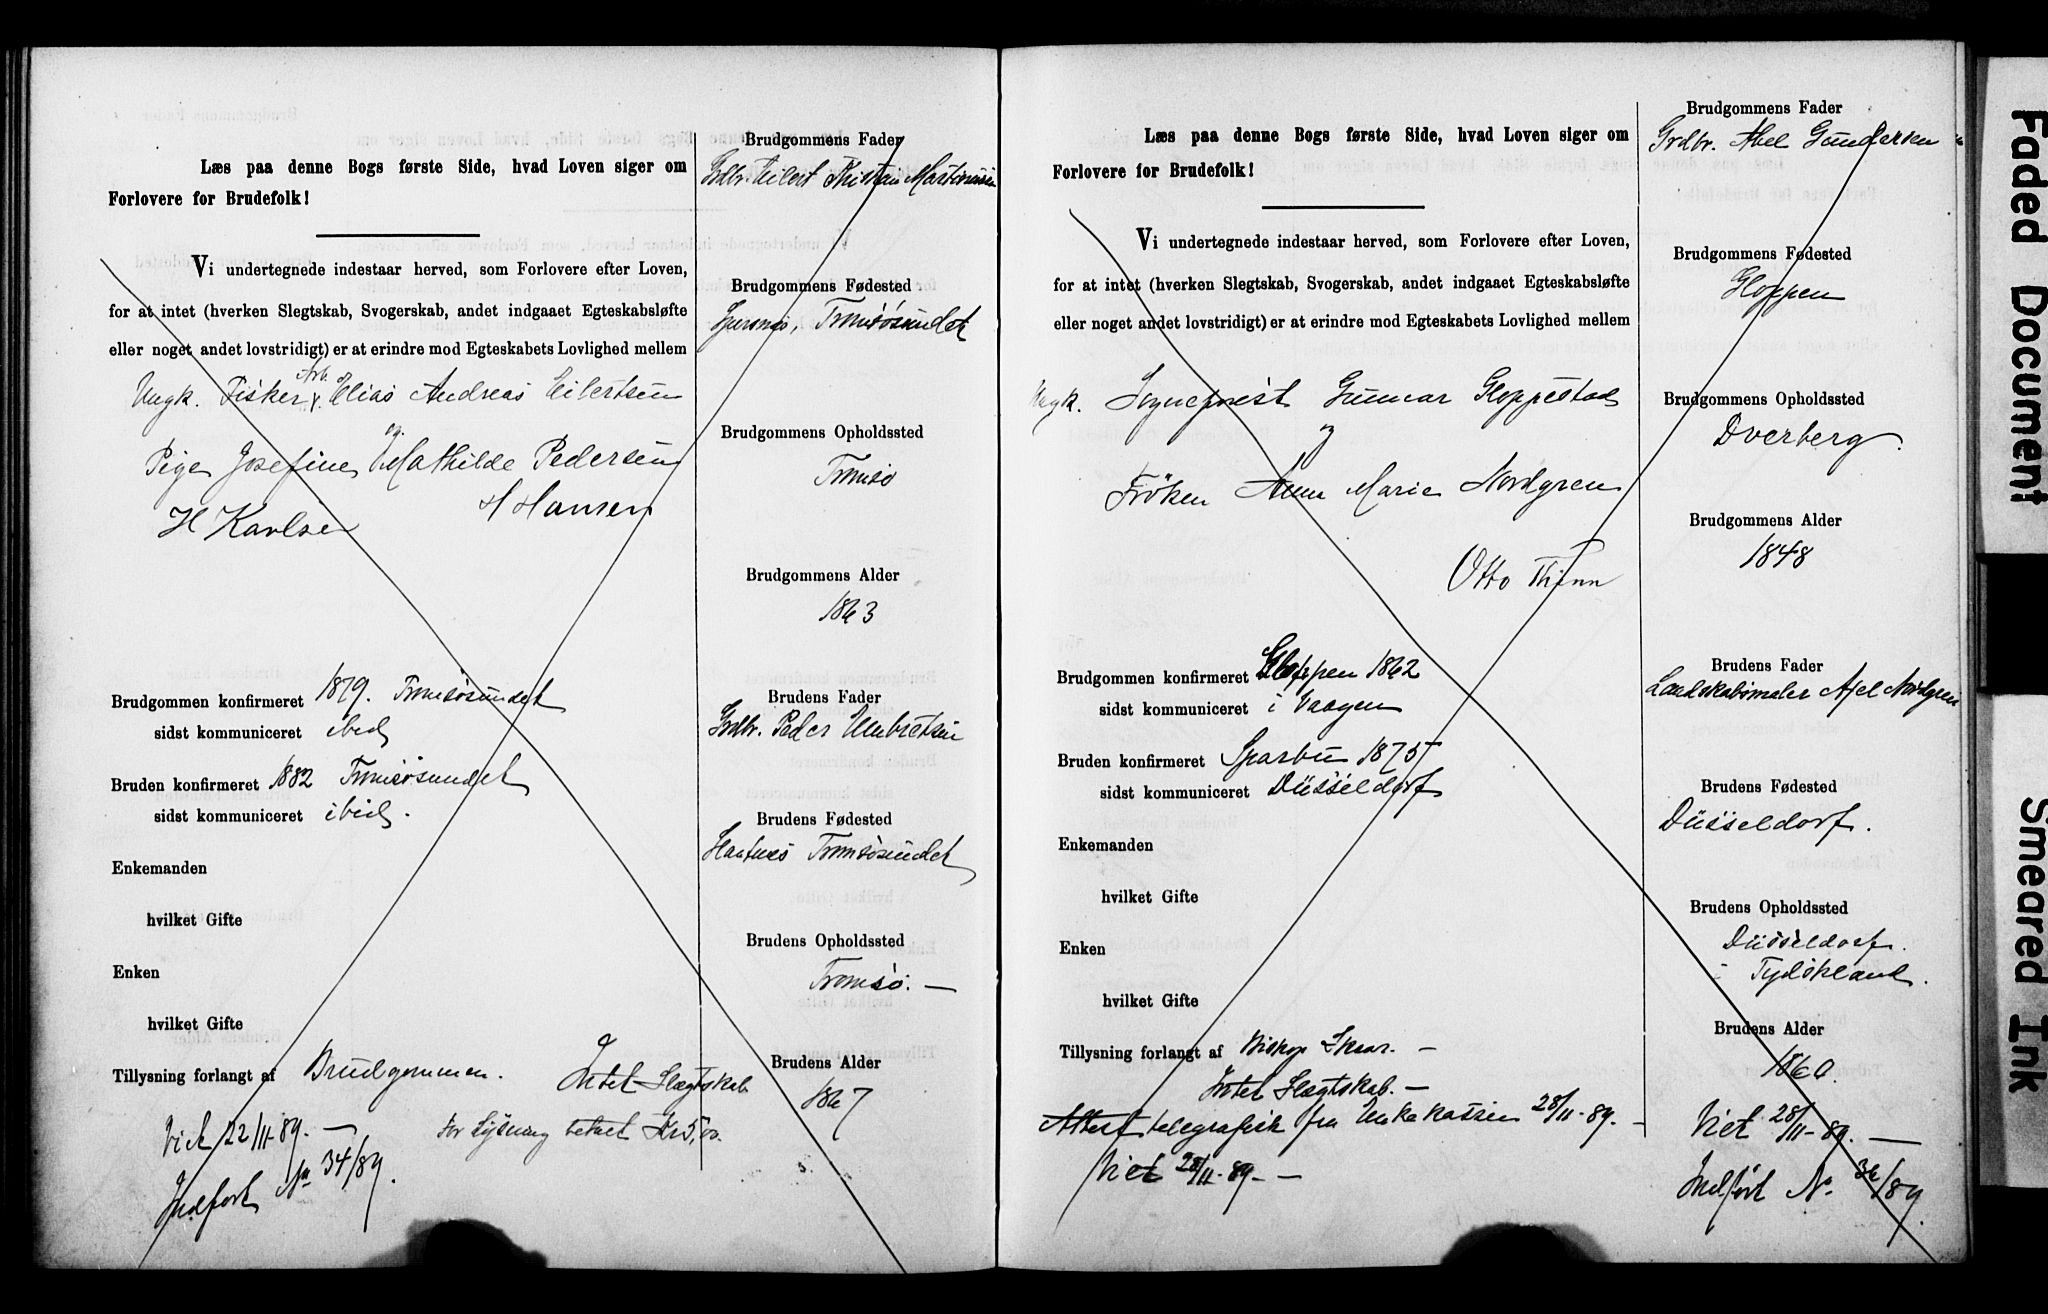 Læs paa denne Bogs første Side, hvad Loven siger om
Forlovere for Brudefolk!
Vi undertegnede indestaar herved, som Forlovere efter Loven,
for at intet (hverken Slegtskab, Svogerskab, andet indgaaet Egteskabsløfte
eller noget andet lovstridigt) er at erindre mod Egteskabets Lovlighed mellem
Arb.
Ungk. Fisker Elias Andreas Eilertsen
og
Pige Josefine Mathilde Pedersen
H Hansen
H Karlsen
Brudgommen konfirmeret 1879. Tromsøsundet
sidst kommuniceret ibid
Bruden konfirmeret 1882 Tromsøsundet
sidst kommuniceret ibid.
Enkemanden
hvilket Gifte
Enken
hvilket Gifte
Tillysning forlangt af Brudgommen. Intet Slægtskab
Viet 22/11-89. — For Lysning betalt Kr 5,00.
Indført No 34/89.
Brudgommens Fader
Grdbr. Eilert Kristian Martinussen
Brudgommens Fødested
Tromsøsundet
Brudgommens Opholdssted
Tromsø
Brudgommens Alder
1863
Brudens Fader
Grdbr. Peder Umbretsen
Brudens Fødested
Haatnes Tromsøsundet
Brudens Opholdssted
Tromsø. —
Brudens Alder
1867
Læs paa denne Bogs første Side, hvad Loven siger om
Forlovere for Brudefolk!
Vi undertegnede indestaar herved, som Forlovere efter Loven,
for at intet (hverken Slegtskab, Svogerskab, andet indgaaet Egteskabsløfte
eller noget andet lovstridigt) er at erindre mod Egteskabets Lovlighed mellem
Ungk. Sogneprest Gunnar Gloppestad
og
Frøken Anna Marie Nordgren
Otto Thinn
Brudgommen konfirmeret Gloppen 1862
sidst kommuniceret i Vaagen
Bruden konfirmeret Sparbu 1875
sidst kommuniceret Düsseldorf
Enkemanden
hvilket Gifte
Enken
hvilket Gifte
Tillysning forlangt af Biskop Skaar. —
Intet Slægtskab. —
Attest telegrafisk fra Enkekassen 28/11-89. —
Viet 28/11-89. —
Brudgommens Fader
Grdbr. Abel Gundersen
Brudgommens Fødested
Gloppen
Brudgommens Opholdssted
Dverberg.
Brudgommens Alder
1848
Brudens Fader
Landskabsmaler Axel Nordgren
Brudens Fødested
Düsseldorf.
Brudens Opholdssted
Düsseldorf.
i Tydskland.
Brudens Alder
1860.
Viet 28/11-89. —
Indført No. 36/89.
Faded Document
Smeared Ink